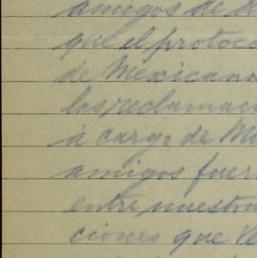 amigos de
que el protoco
de Mexicano
las reclamac
a cargo de M
amigos fuer
entre nuestra
ciones que